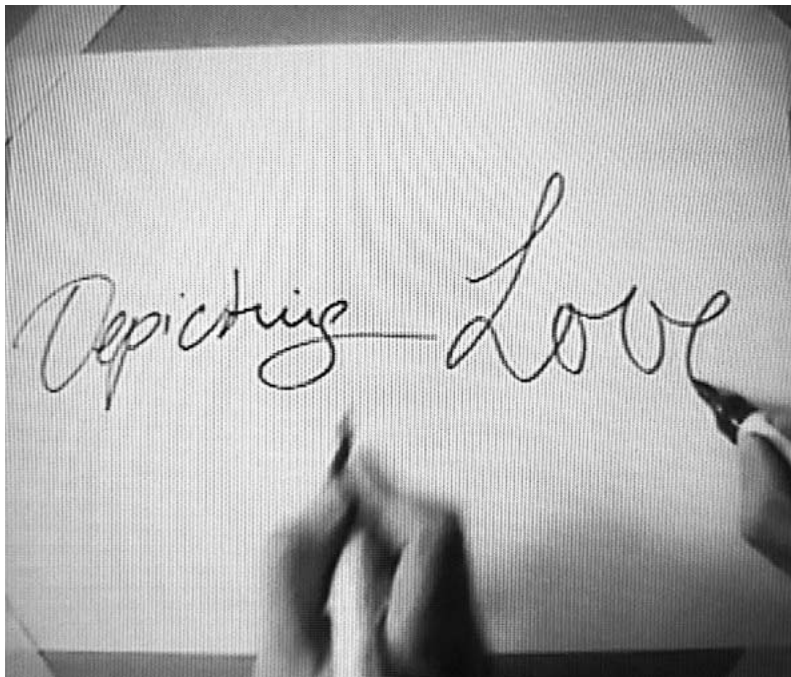 Depicting Love